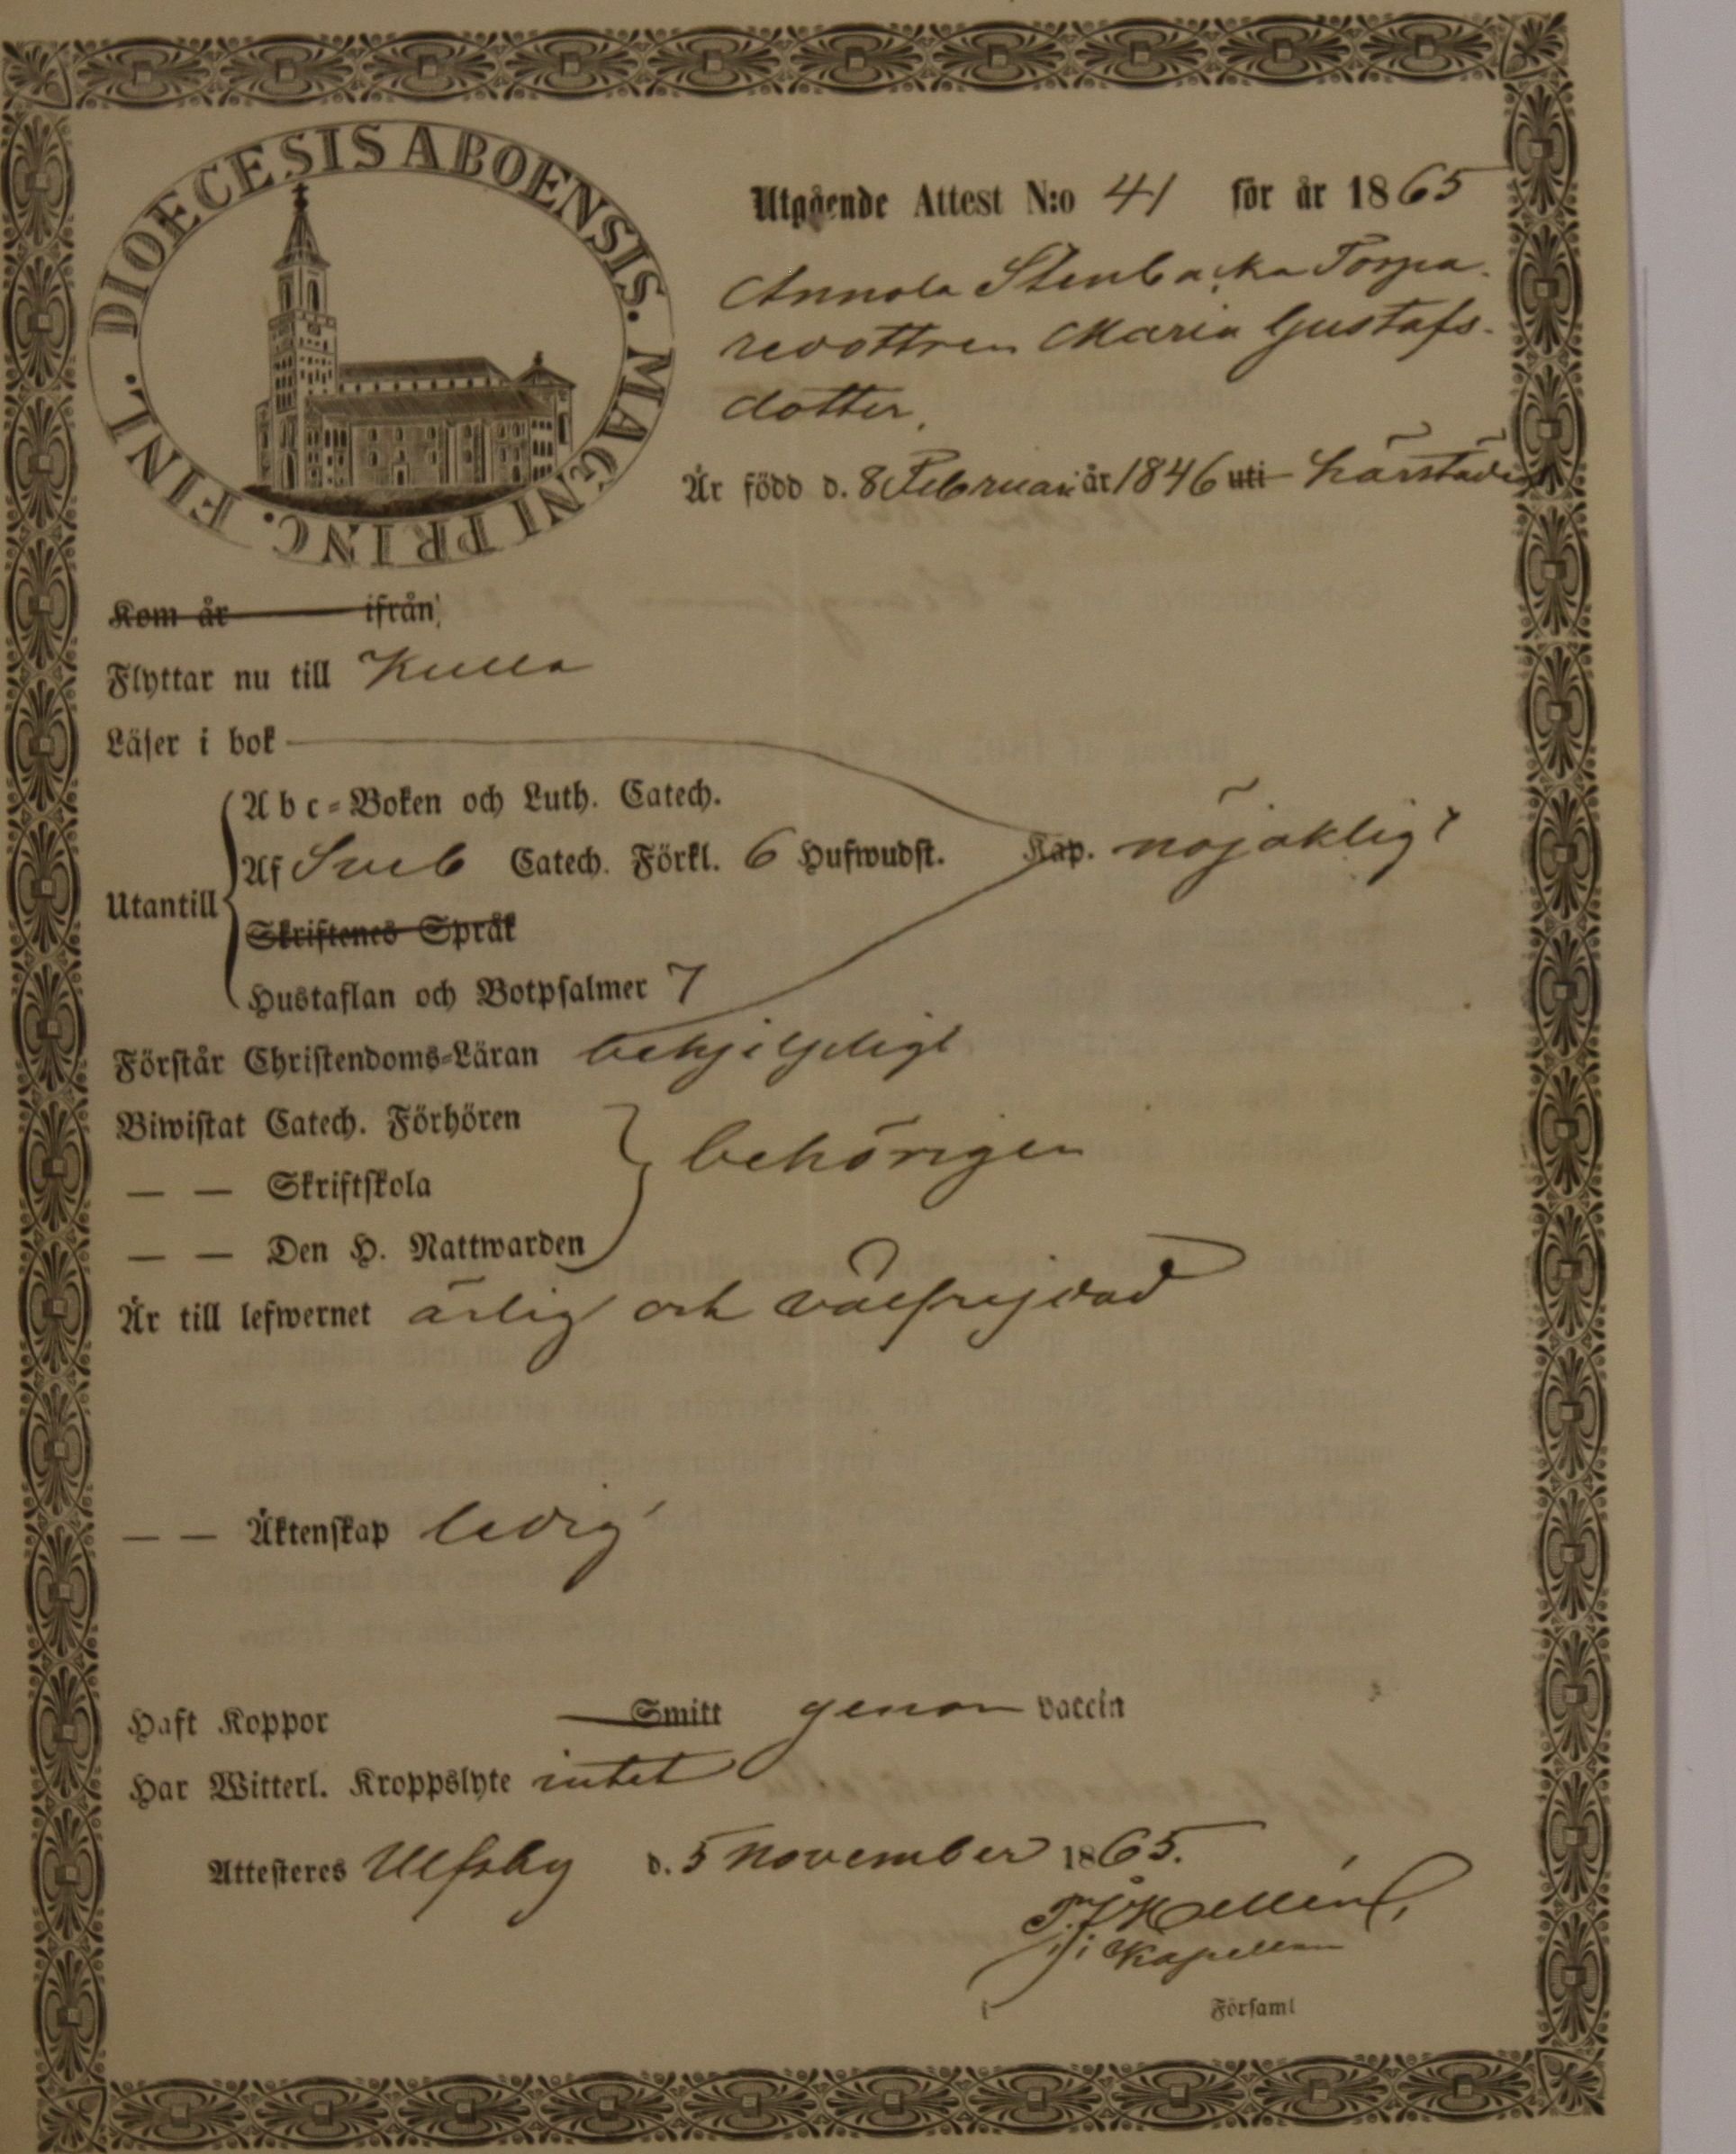 DIOECESIS ABOENSIS. MAGNI PRINC. FINL.
Utgående Attest N:o 41 för år 1865
Annola Stenbacka Torpa-
redottren Maria Gustafs-
dotter.
Är född d. 8 Februari år 1846 uti härstädes
Kom år ifrån
Flyttar nu till Kulla
Läser i bok
Abc-Boken och Luth. Catech.
Af Sveb Catech. Förkl. 6 Hufwudst. Kap. nöjaktligt
Utantill
Skriftenes Språk
Hustaflan och Botpsalmer 7
Förstår Christendoms-Läran
Biwistat Catech. Förhören
— — Skriftskola behörigen
— — Den H. Nattwarden
Är till lefwernet ärlig och välfrejdad
— — Äktenskap ledig
Haft Koppor Smitt genom vaccin
Har Witterl. Kroppslyte intet
Attesteres Ulfsby d. 5 November 1865.
Kapellan
i Församl